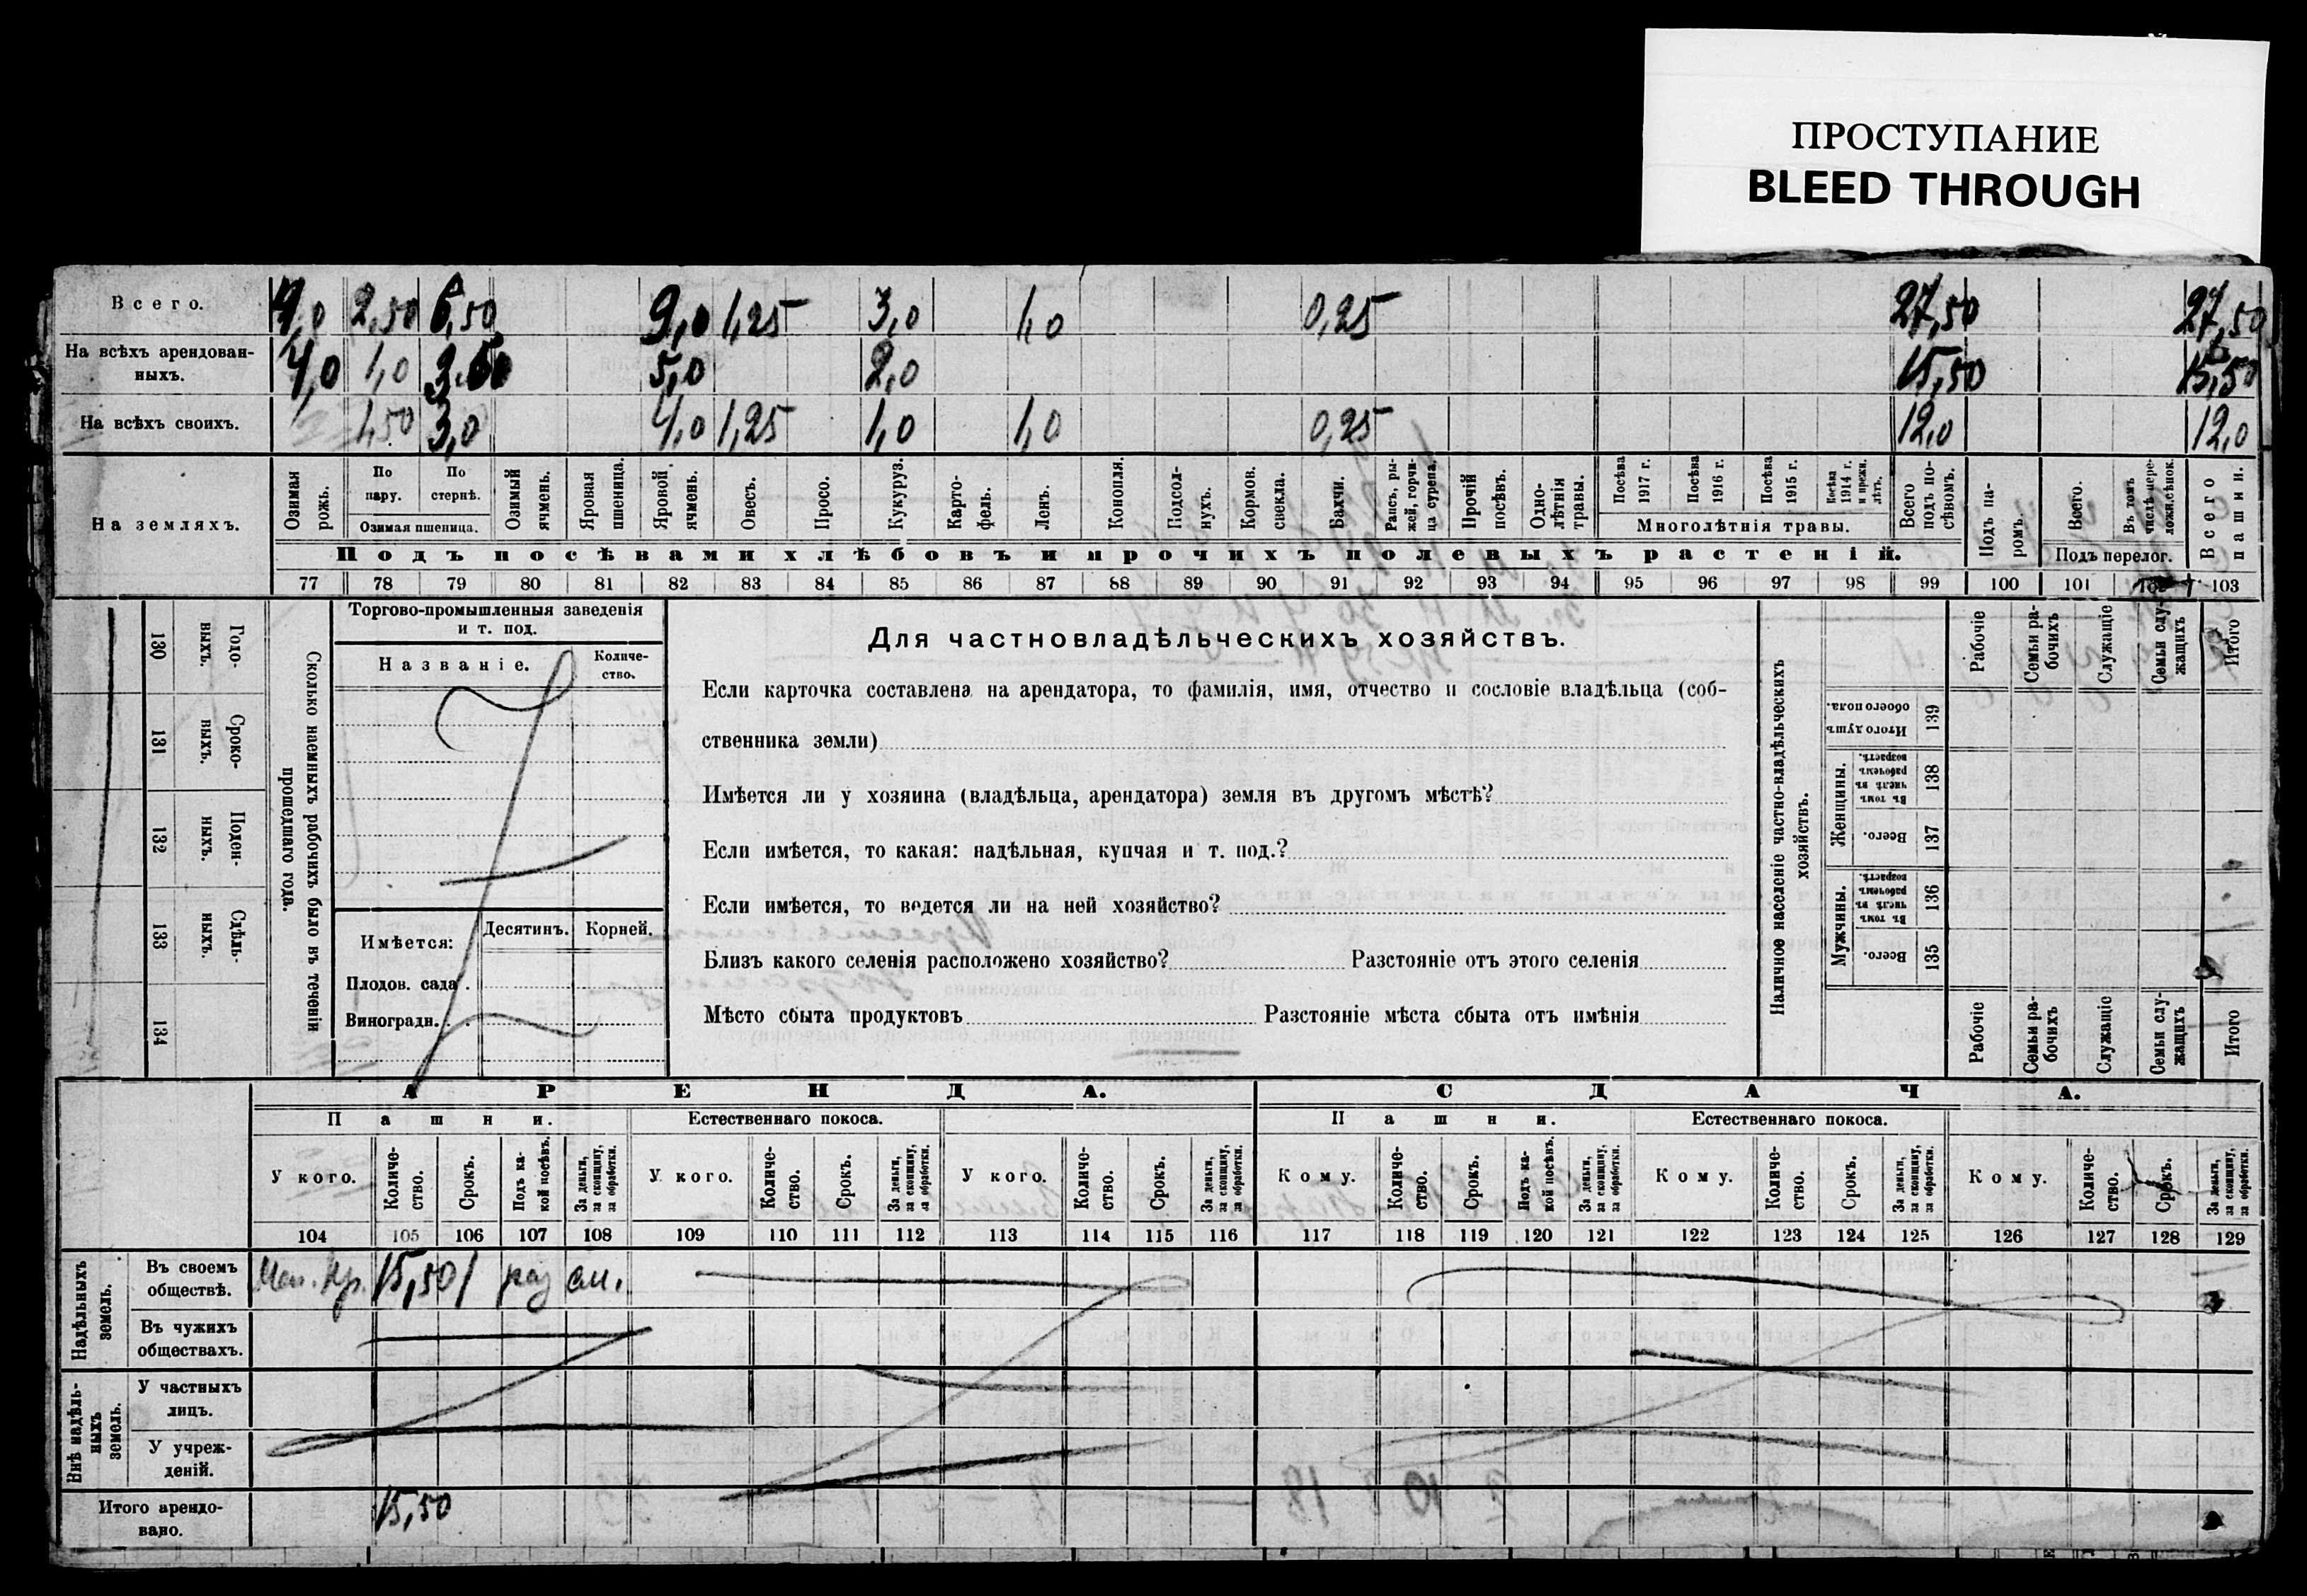 ПРОСТУПАНИЕ
BLEED THROUGH
Всего. 4,0 2,50 6,50 9,0 1,25 3,0 1,0 0,25 27,50 27,50
На всѣхъ арендован-
ныхъ. 4,0 1,0 3,50 5,0 2,0 15,50 15,50
На всѣхъ своихъ. 1,50 3,0 4,0 1,25 1,0 1,0 0,25 12,0 12,0
На земляхъ.
Озимая рожь.
По пару.
По стернѣ.
Озимая пшеница.
Озимый ячмень.
Яровая пшеница.
Яровой ячмень.
Овесъ.
Просо.
Кукуруз.
Карто-
фель.
Ленъ.
Конопля.
Подсол-
нухъ.
Кормов. свекла.
Бахчи.
Рапсъ, ры-
жей, горчи-
ца сурепа,
Прочій посѣвъ.
Одно-
лѣтнія травы.
Посѣва 1917 г.
Посѣва 1916 г.
Посѣва 1915 г.
Посѣва 1914 г. и прежн. лѣтъ.
Многолѣтнія травы.
Всего подъ по-
сѣвомъ.
Подъ па-
ромъ.
Всего.
Въ томъ числѣ пере-
ложн.сѣнок.
Подъ перелог.
Всего пашни.
Подъ посѣвами хлѣбовъ и прочихъ полевыхъ растеній.
77 78 79 80 81 82 83 84 85 86 87 88 89 90 91 92 93 94 95 96 97 98 99 100 101 102 103
130 Годо-
выхъ.
131 Сроко-
выхъ.
132 Поден-
ныхъ.
133 Сдѣль-
ныхъ.
134
Сколько наемныхъ рабочихъ было въ теченіи
прошедшаго года.
Торгово-промышленныя заведенія
и т. под.
Названіе. Количе-
ство.
Имѣется: Десятинъ. Корней.
Плодов. сада .
Виноградн. . .
Для частновладѣльческихъ хозяйствъ.
Если карточка составлена на арендатора, то фамилія, имя, отчество и сословіе владѣльца (соб-
ственника земли)
Имѣется ли у хозяина (владѣльца, арендатора) земля въ другомъ мѣстѣ?
Если имѣется, то какая: надѣльная, купчая и т. под.?
Если имѣется, то ведется ли на ней хозяйство?
Близъ какого селенія расположено хозяйство? Разстояніе отъ этого селенія
Мѣсто сбыта продуктовъ Разстояніе мѣста сбыта отъ имѣнія
Наличное населеніе частно-владѣльческихъ
хозяйствъ.
Итого душъ обоего пола. 139
Женщины.
Въ томъ числѣ въ рабочемъ возрастѣ. 138
Всего. 137
Мужчины.
Въ томъ числѣ въ рабочемъ возрастѣ. 136
Всего. 135
Рабочіе
Семьи ра-
бочихъ
Служащіе
Семьи слу-
жащихъ
Итого
Рабочіе
Семьи ра-
бочихъ
Служащіе
Семьи слу-
жащихъ
Итого
АРЕНДА. СДАЧА.
Пашни. Естественнаго покоса. Пашни. Естественнаго покоса.
У кого.
Количе-
ство.
Срокъ.
Подъ ка-
кой посѣвъ.
За деньги, за скопщину, за обработки.
У кого.
Количе-
ство.
Срокъ.
За деньги, за скопщину, за обработки.
У кого.
Количе-
ство.
Срокъ.
За деньги, за скопщину, за обработки.
Кому.
Количе-
ство.
Срокъ.
Подъ ка-
кой посѣвъ.
За деньги, за скопщину, за обработки.
Кому.
Количе-
ство.
Срокъ.
За деньги, за скопщину, за обработки.
Кому.
Количе-
ство.
Срокъ.
За деньги, за скопщину, за обработки.
104 105 106 107 108 109 110 111 112 113 114 115 116 117 118 119 120 121 122 123 124 125 126 127 128 129
Надѣльныхъ земель.
Въ своемъ
обществѣ. 15,50 1
Въ чужихъ
обществахъ.
Внѣ надѣль-
ныхъ земель.
У частныхъ
лицъ.
У учреж-
деній.
Итого арендо-
вано. 15,50